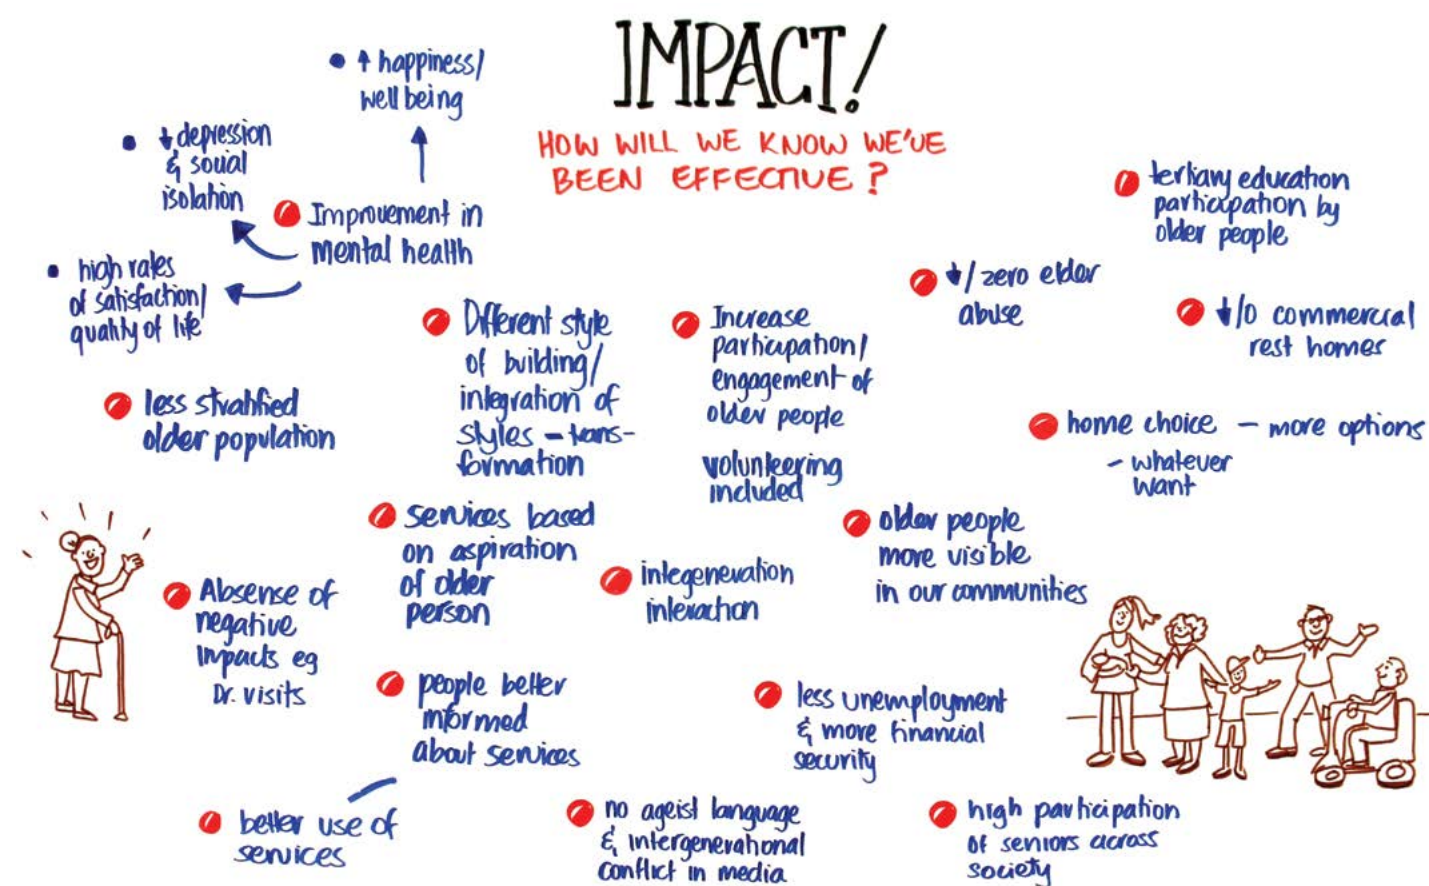 IMPACT!
HOW WILL WE KNOW WE'VE
BEEN EFFECTIVE?
• ↑ happiness/
well being
• ↓ depression
& social
isolation
Improvement in
mental health
• high rates
of satisfaction/
quality of life
less stratified
older population
Different style
of building/
integration of
styles – trans-
formation
Increase
participation/
engagement of
older people
volunteering
included
↓/zero elder
abuse
tertiary education
participation by
older people
↓/0 commercial
rest homes
home choice – more options
– whatever
want
services based
on aspiration
of older
person
integeneration
interaction
older people
more visible
in our communities
Absense of
negative
impacts eg
Dr. visits
people better
informed
about services
less unemployment
& more financial
security
better use of
services
no ageist language
& intergenerational
conflict in media
high participation
of seniors across
society